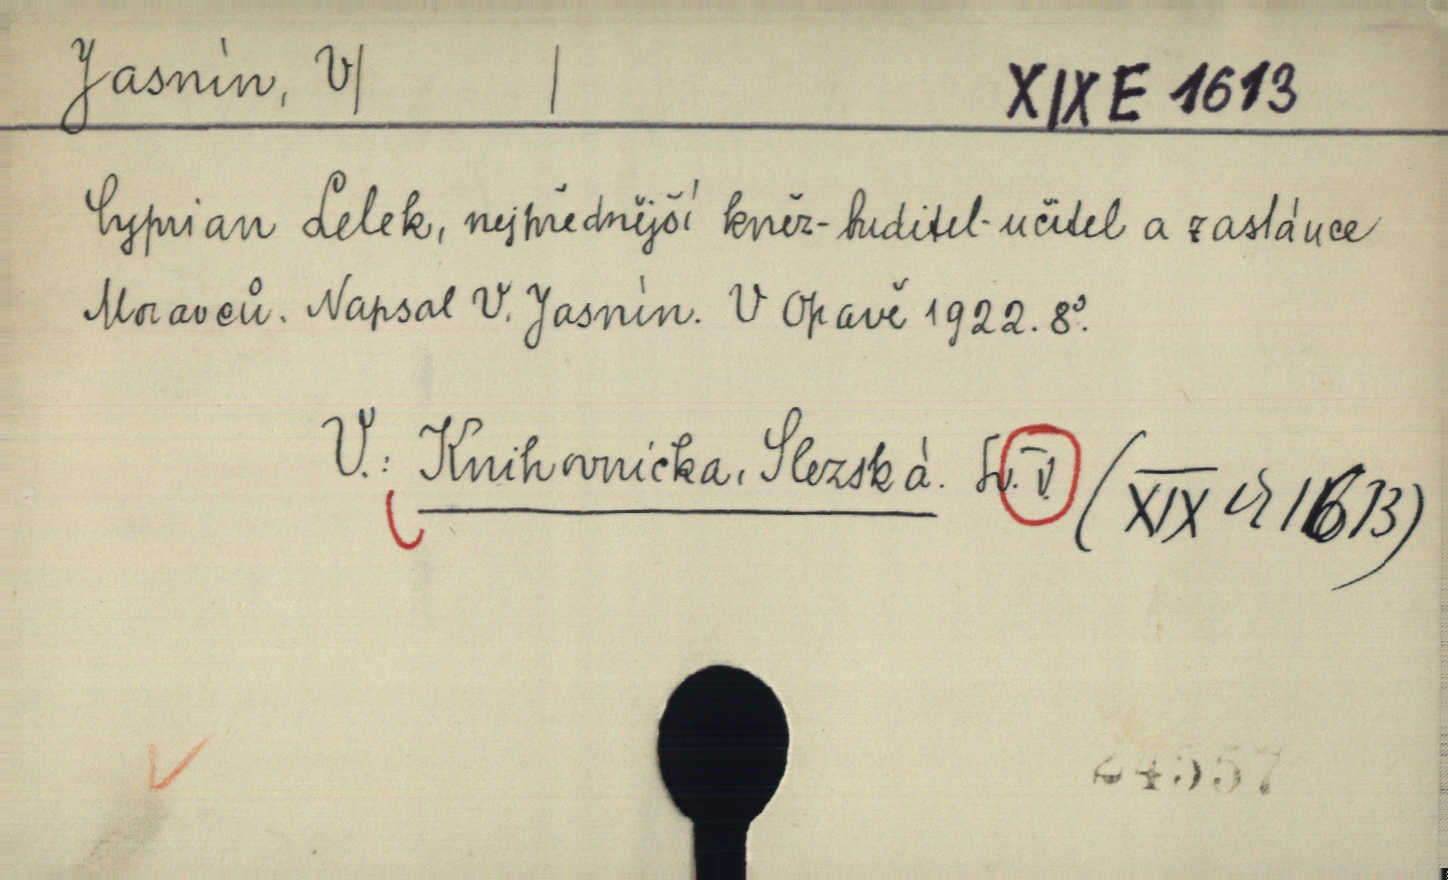 Jasnín, V| |
XIX E 1613
Cyprian Lelek, nejpřednější kněz-buditel-učitel a zastánce
Moravců. Napsal V. Jasnín. V Opavě 1922. 8°.
V.: Knihovnicka, Slezská. Sv. V. (XIX 1613)